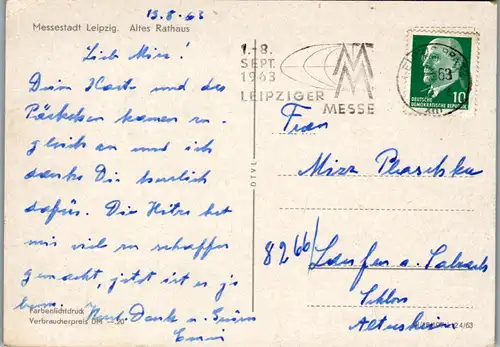 13.8.63
Messestadt Leipzig. Altes Rathaus
Lieb Mizz!
Dein Karte und das
Päckchen kamen zu-
gleich an und ich
danke Dir herzlich
dafür. Die Hitze hat
mir viel zu schaffen
gemacht, jetzt ist es ja
Dank u.
Farbenlichtdruck
Verbraucherpreis DM —,20
DTVL
1.-8.
SEPT.
1963
LEIPZIGER
MESSE
MM
63
DEUTSCHE
DEMOKRATISCHE REPUBLIK
10
Frau
Mizz
8266/ Laufen a. Salzach
Schloss
24/63